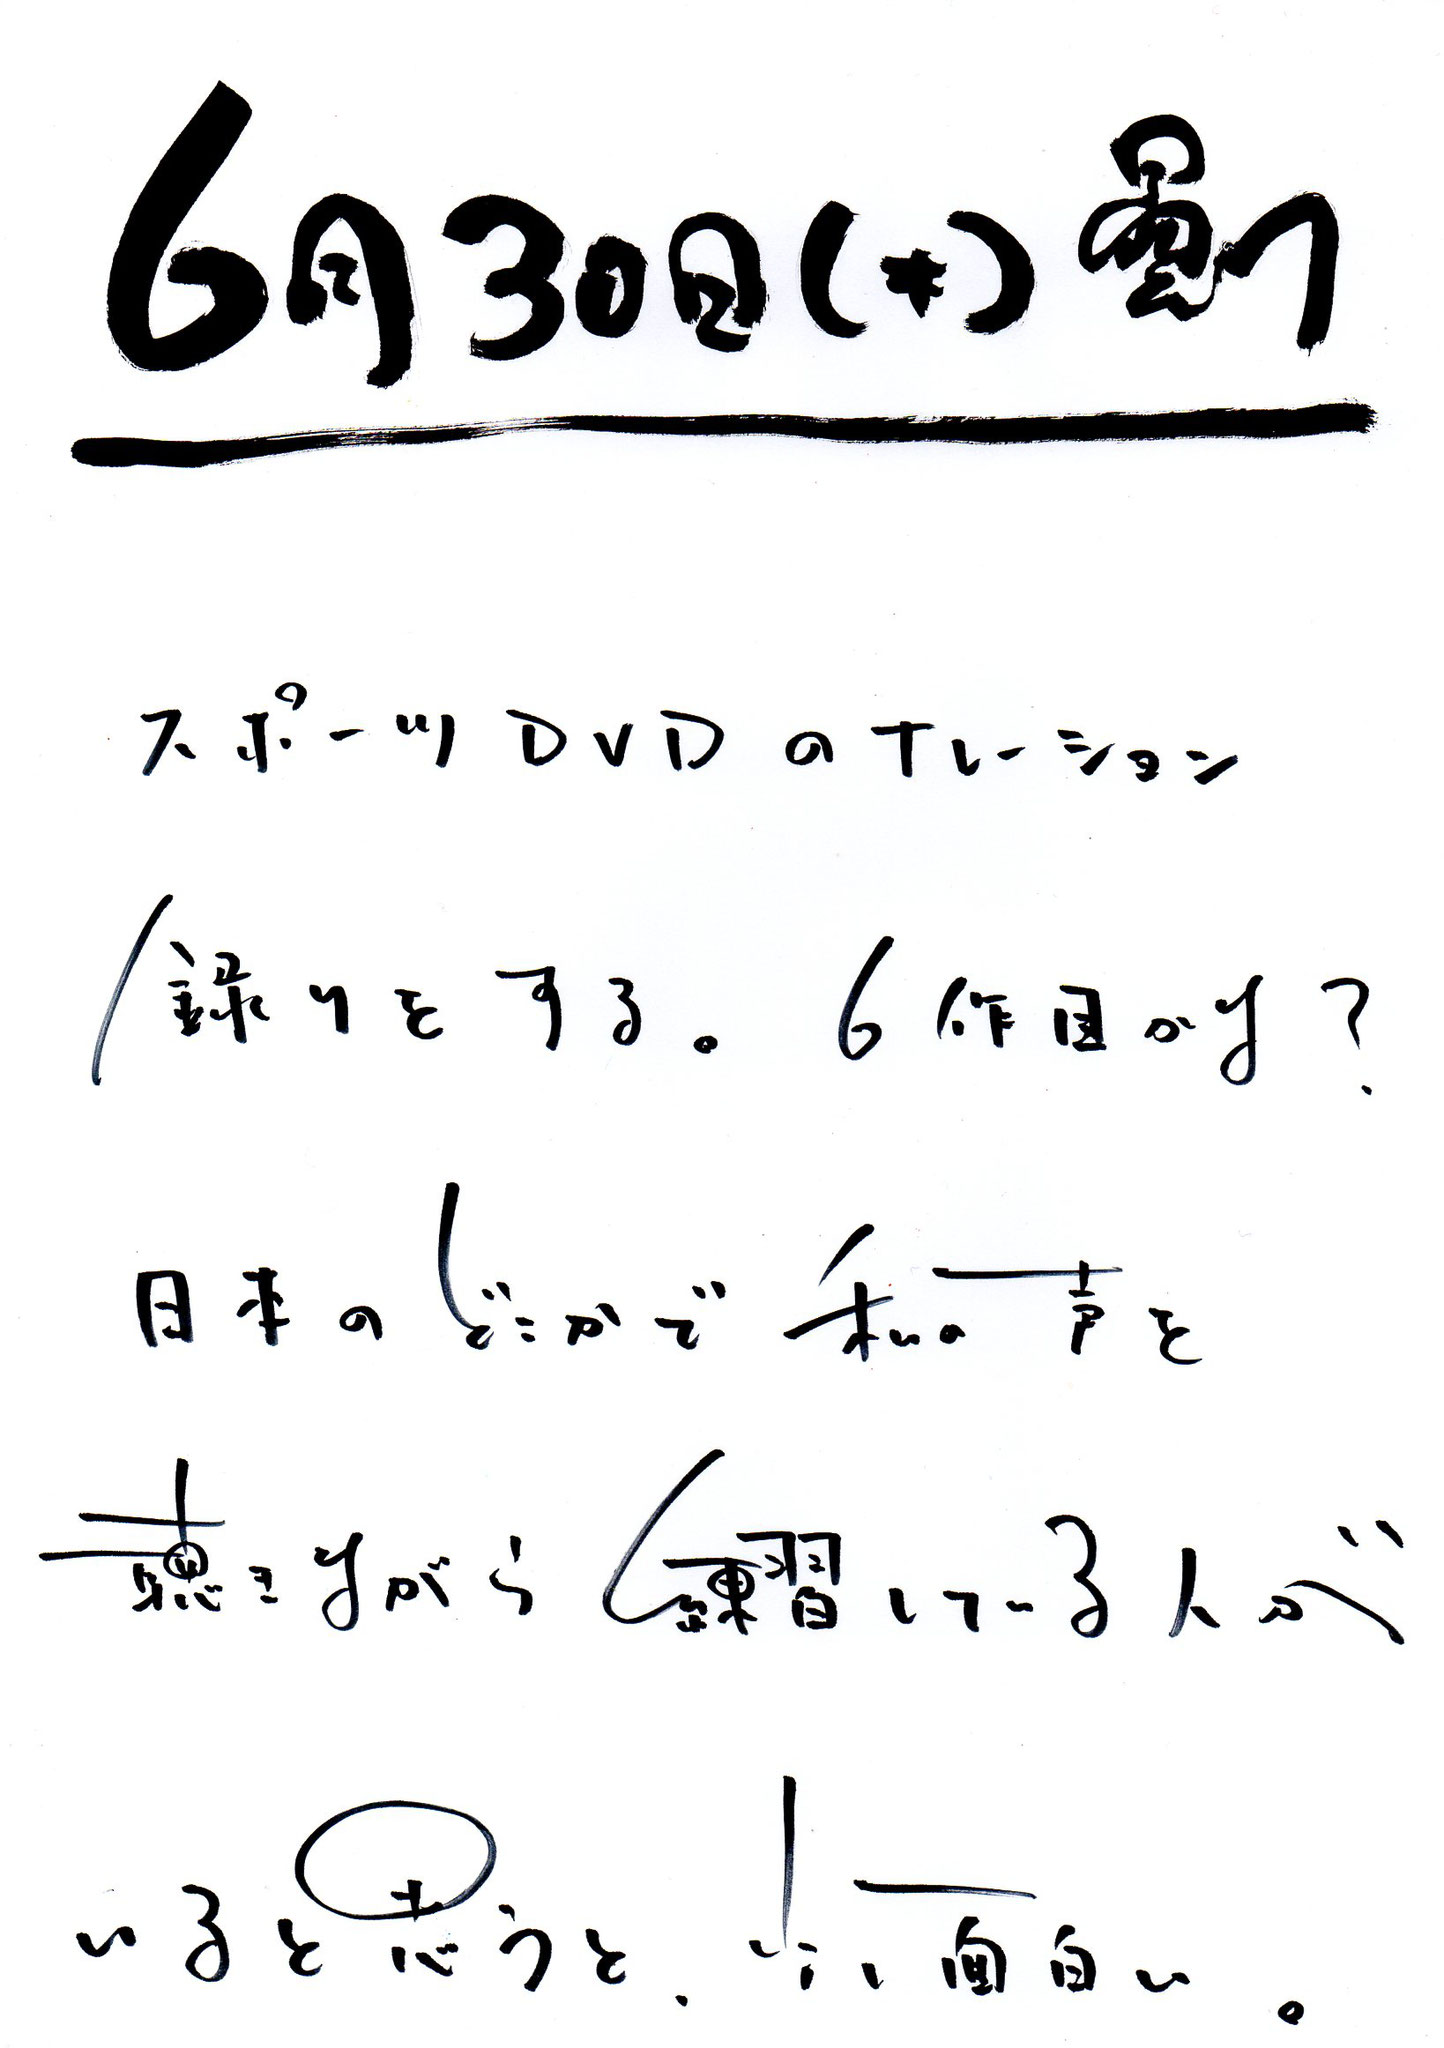 6月30日(木) 曇り
スポーツDVDのナレーション
録りをする。6作目かな?
日本のどこかで私の声を
聴きながら練習している人が
いると思うと、少し面白い。